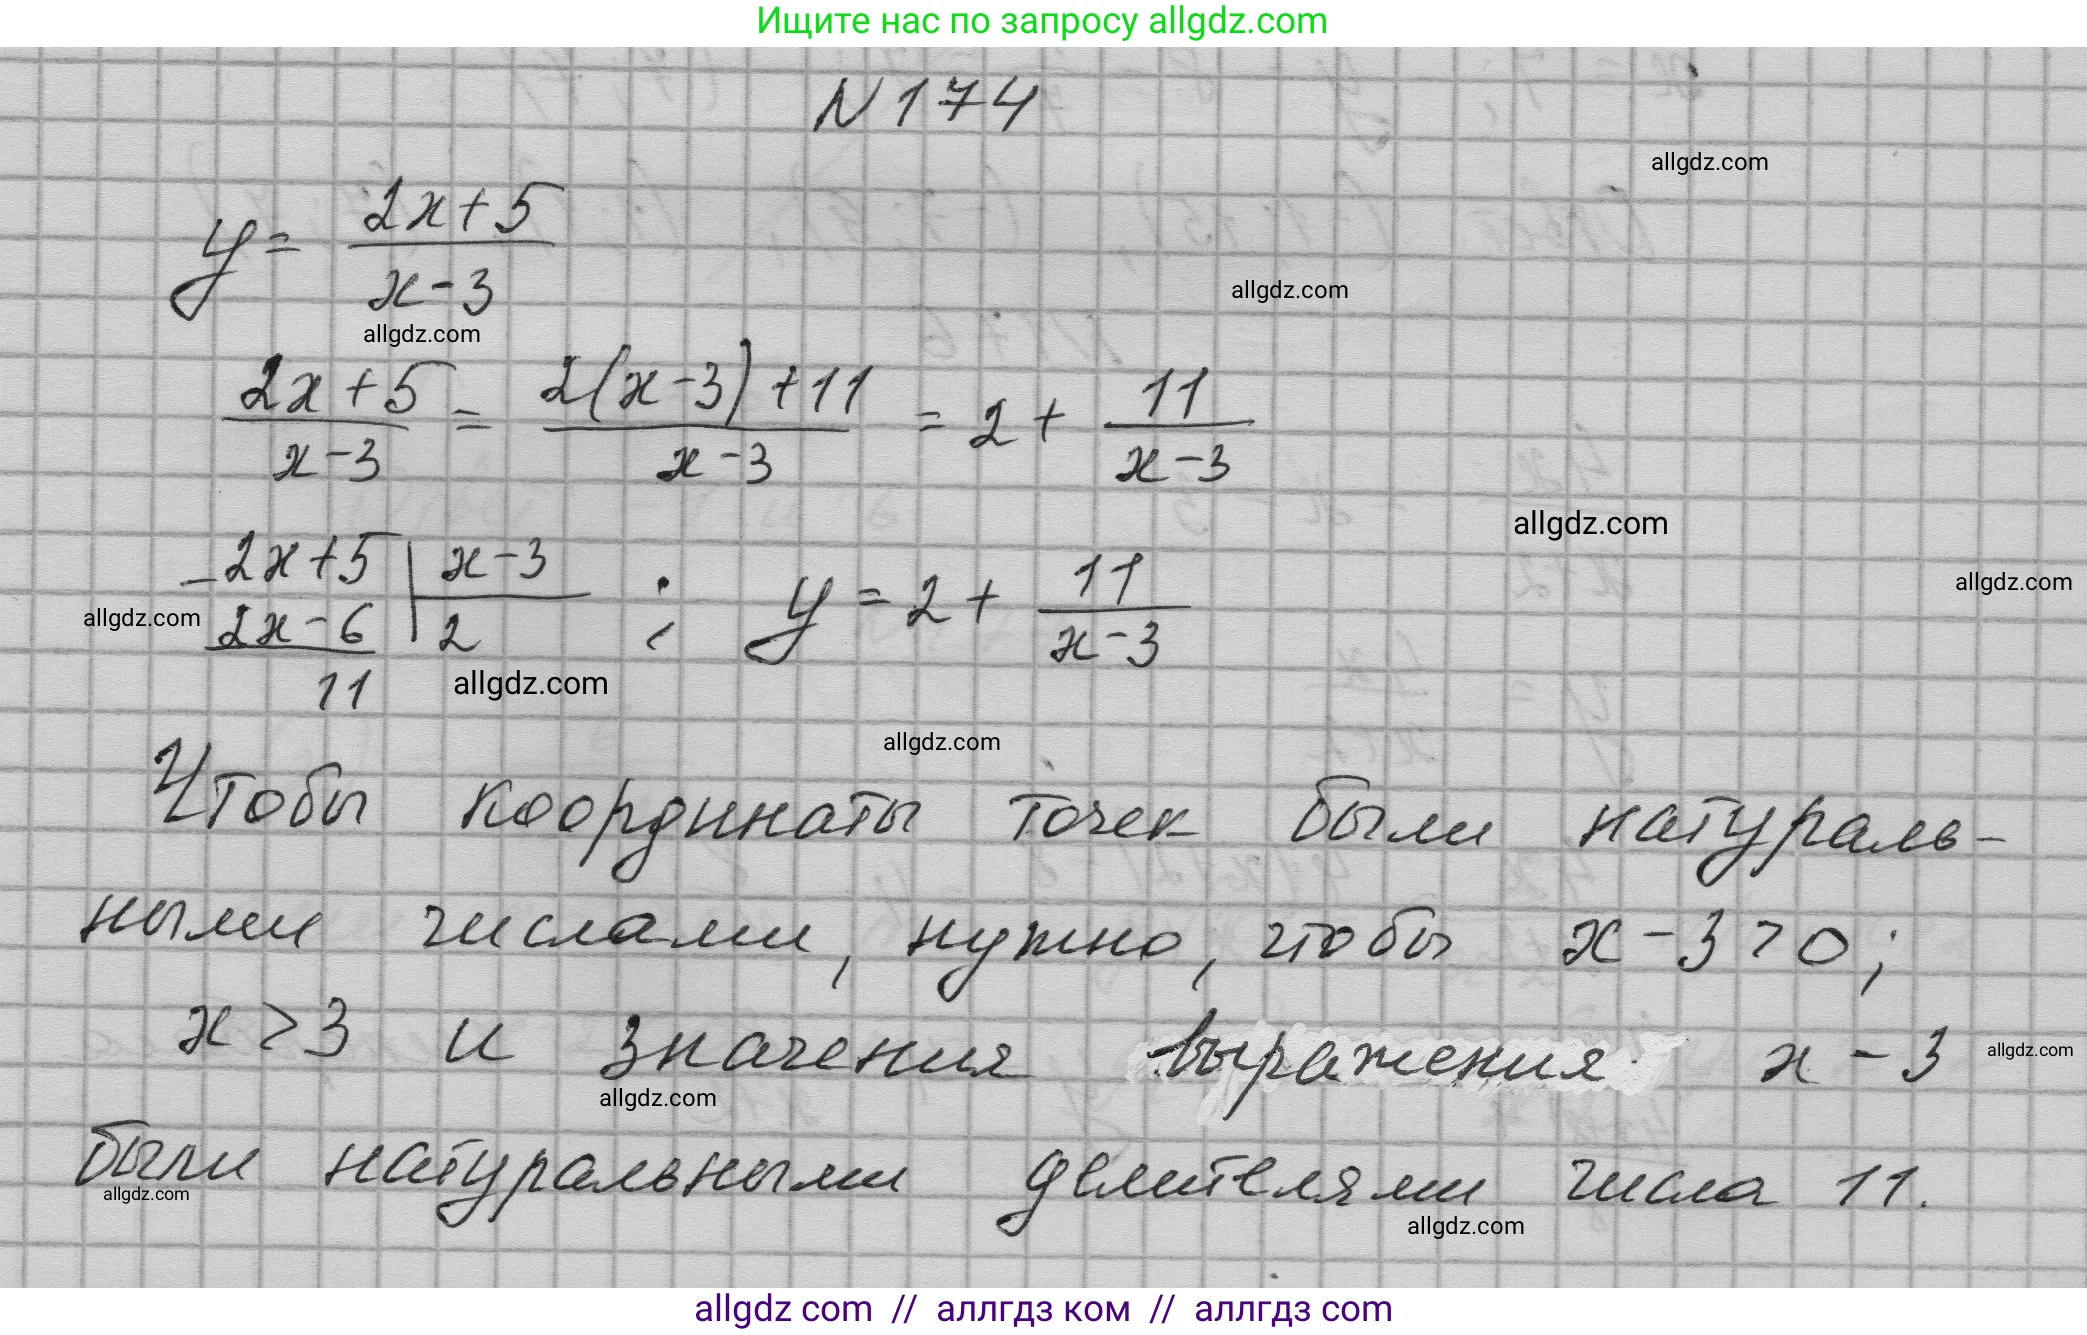 Ищите нас по запросу allgdz.com
N 174
allgdz.com
y = (2x+5)/(x-3)
allgdz.com
allgdz.com
(2x+5)/(x-3) = (2(x-3)+11)/(x-3) = 2 + 11/(x-3)
allgdz.com
-2x+5 | x-3
2x-6 | 2 ; y = 2 + 11/(x-3)
allgdz.com
allgdz.com
11
allgdz.com
allgdz.com
Чтобы координаты точек были натураль-
ными числами, нужно, чтобы x-3>0;
x>3 и значения выражения x-3
allgdz.com
allgdz.com
были натуральными делителями числа 11.
allgdz.com
allgdz.com
allgdz com // аллгдз ком // аллгдз com